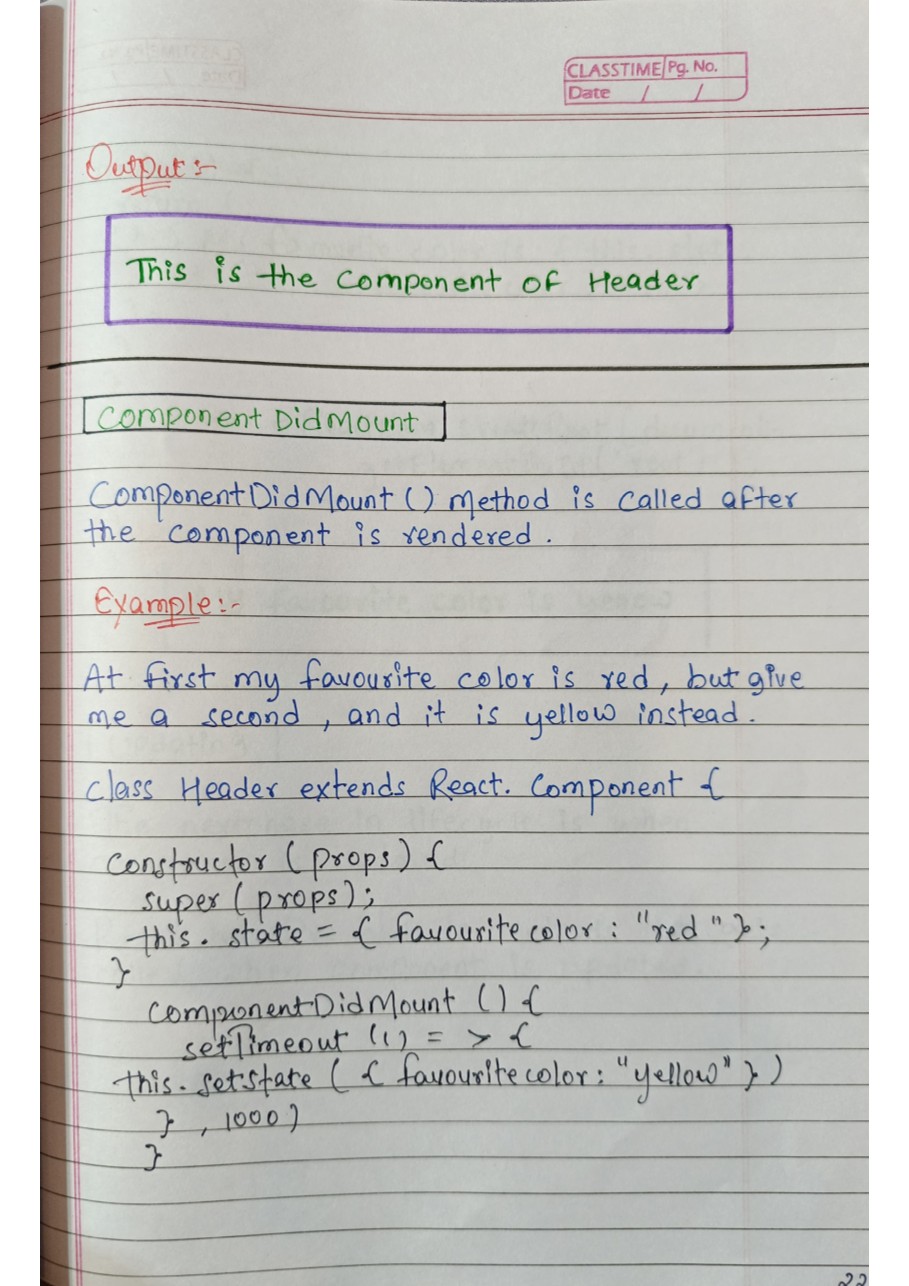 CLASSTIME Pg. No.
Date / /
Output :-
This is the component of Header
Component DidMount
ComponentDidMount () method is called after
the component is rendered .
Example :-
At first my favourite color is red , but give
me a second , and it is yellow instead .
class Header extends React. Component {
constructor ( props ) {
super ( props ) ;
this . state = { favourite color : "red " } ;
}
componentDidMount () {
setTimeout (() = > {
this . setstate ( { favourite color : "yellow" } )
} , 1000 )
}
22